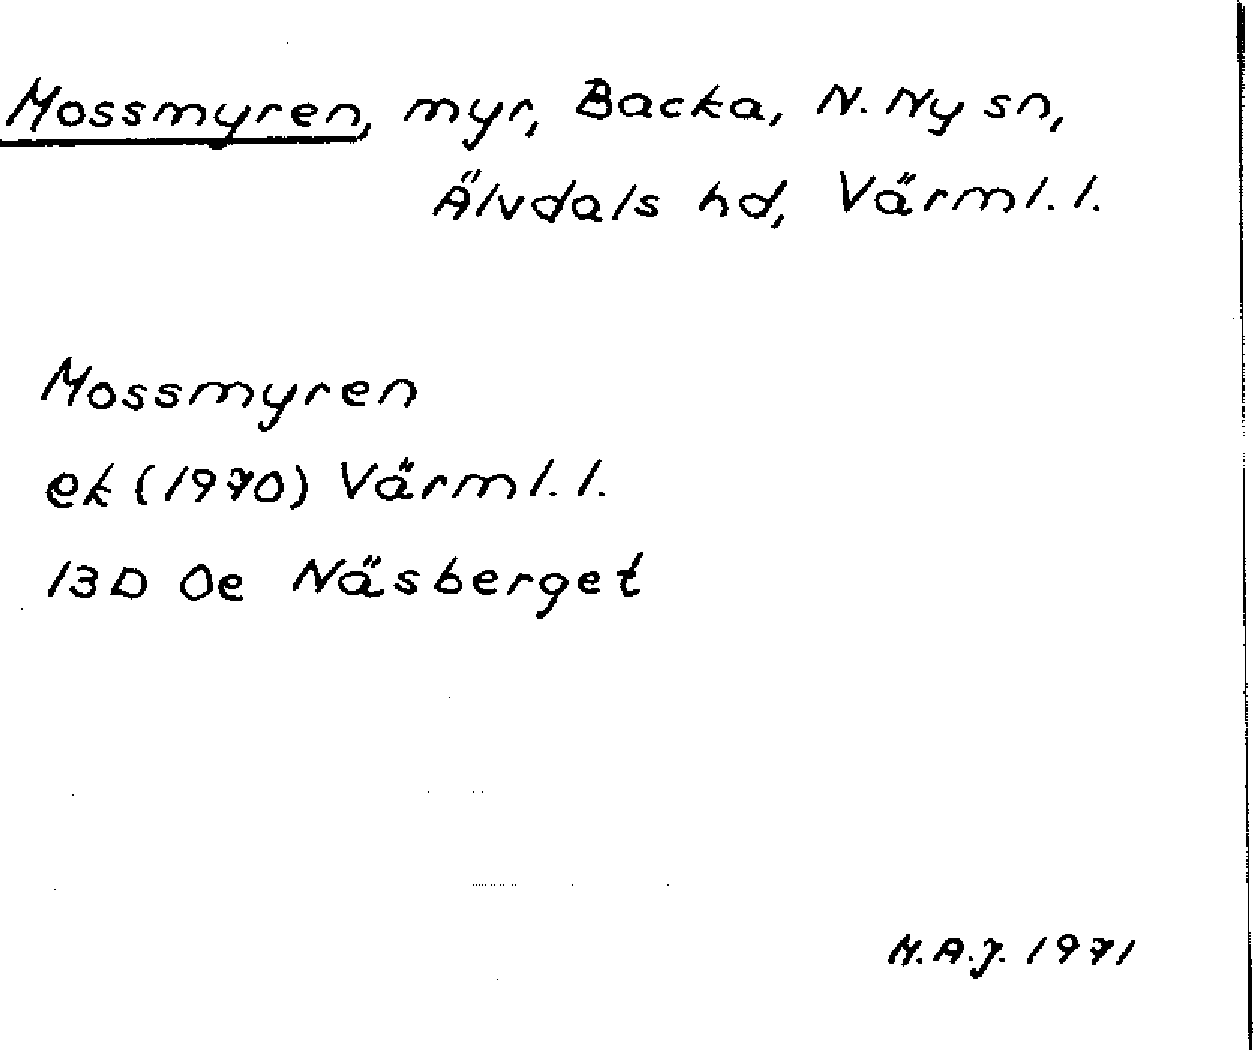 Mossmyren, myr, Backa, N. Ny sn,
Älvdals hd, Värml. l.
Mossmyren
ek (1970) Värml. l.
13D 0e Näsberget
M.A.J. 1971